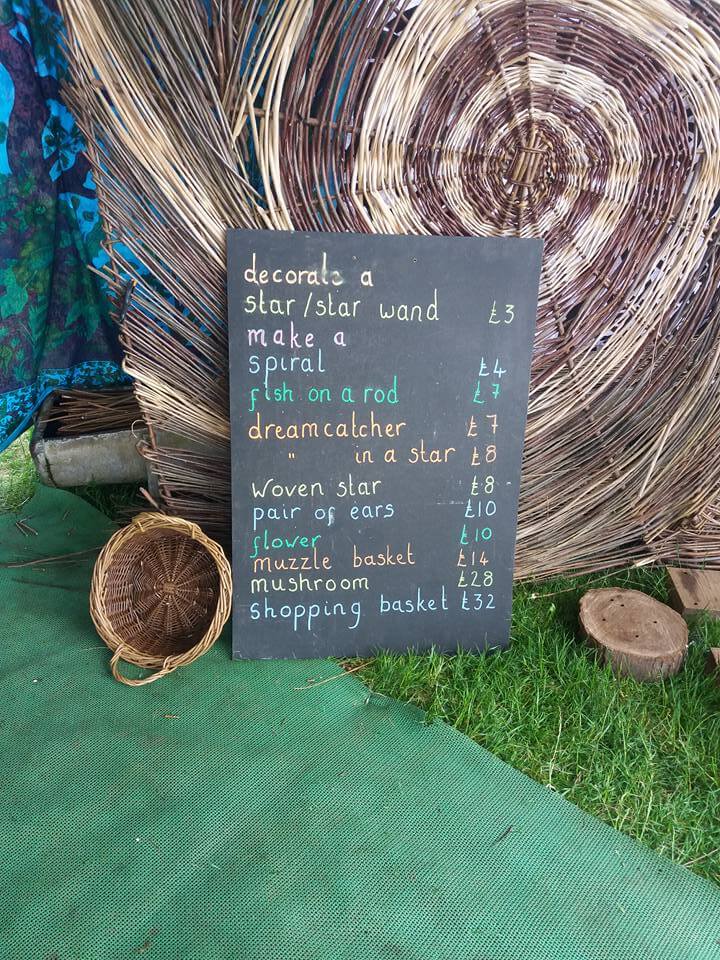 decorate a
star/star wand £3
make a
spiral £4
fish on a rod £7
dreamcatcher £7
" in a star £8
woven star £8
pair of ears £10
flower £10
muzzle basket £14
mushroom £28
shopping basket £32